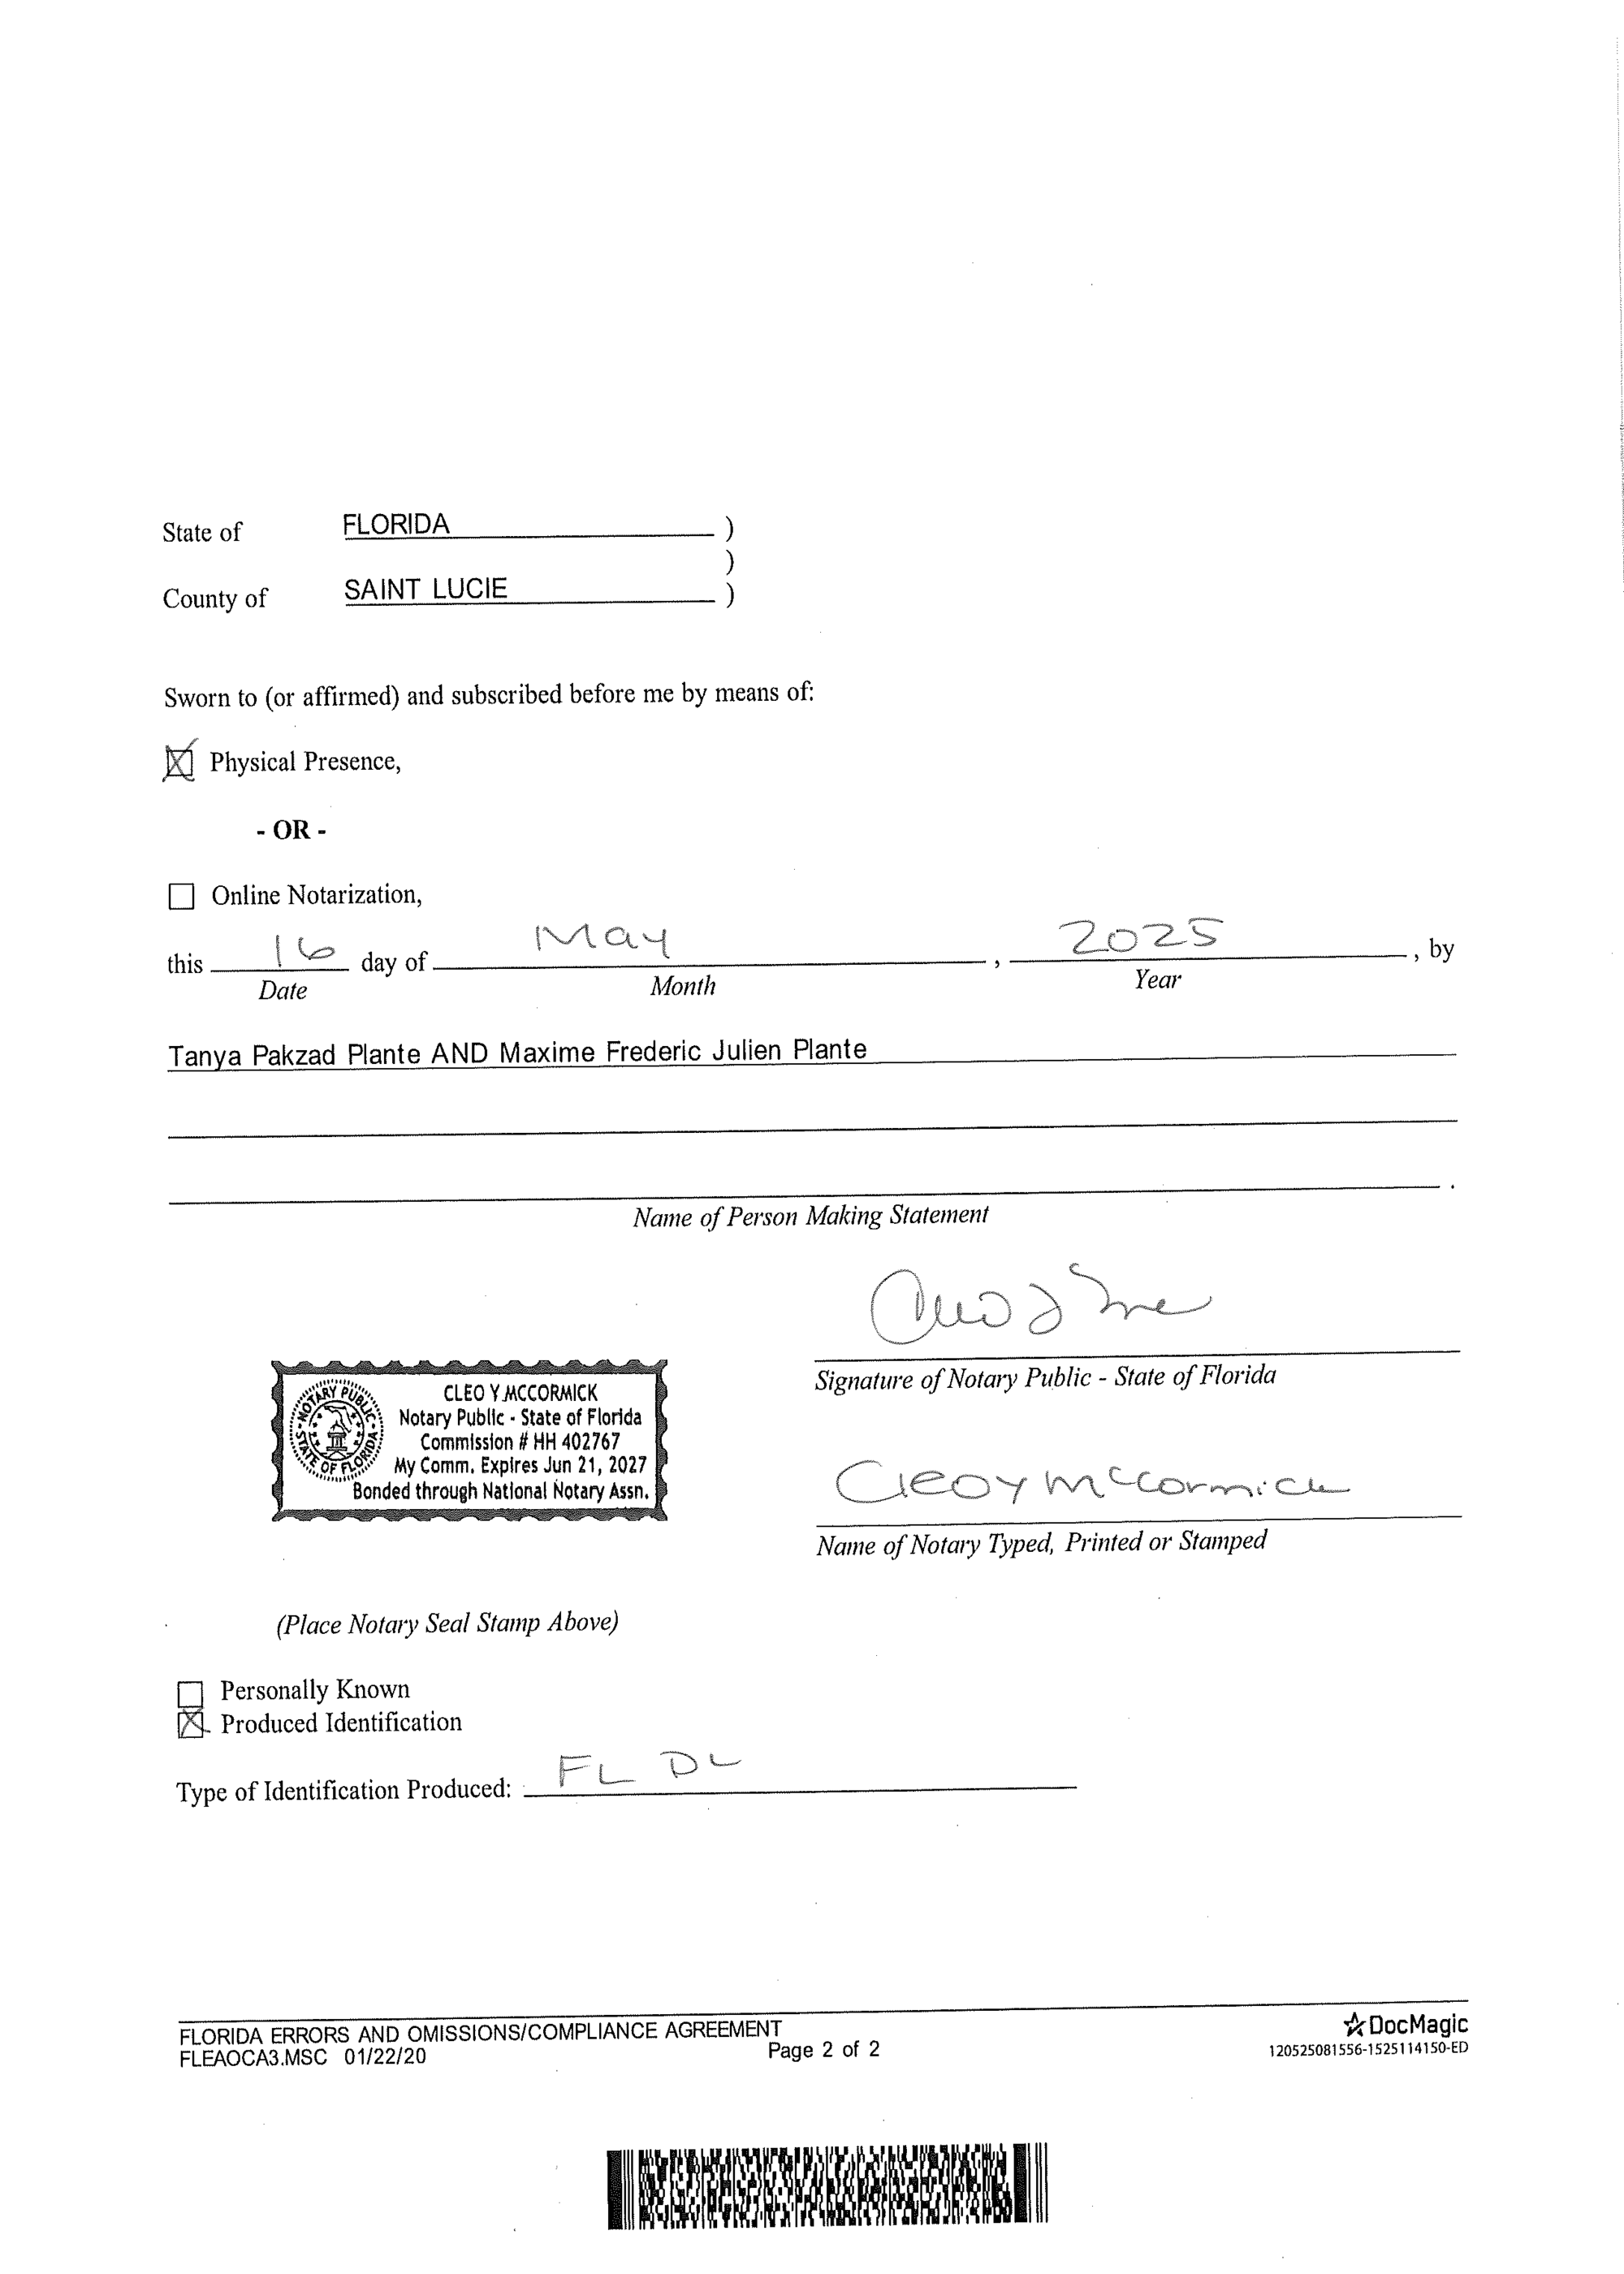 State of FLORIDA )
)
County of SAINT LUCIE )
Sworn to (or affirmed) and subscribed before me by means of:
Physical Presence,
- OR -
Online Notarization,
this 16 day of May , 2025 , by
Date Month Year
Tanya Pakzad Plante AND Maxime Frederic Julien Plante
.
Name of Person Making Statement
Signature of Notary Public - State of Florida
NOTARY PUBLIC
STATE OF FLORIDA
CLEO Y MCCORMICK
Notary Public - State of Florida
Commission # HH 402767
My Comm. Expires Jun 21, 2027
Bonded through National Notary Assn.
Cleo Y McCormick
Name of Notary Typed, Printed or Stamped
(Place Notary Seal Stamp Above)
Personally Known
Produced Identification
Type of Identification Produced: FL DL
FLORIDA ERRORS AND OMISSIONS/COMPLIANCE AGREEMENT
FLEAOCA3.MSC 01/22/20
Page 2 of 2
DocMagic
120525081556-1525114150-ED